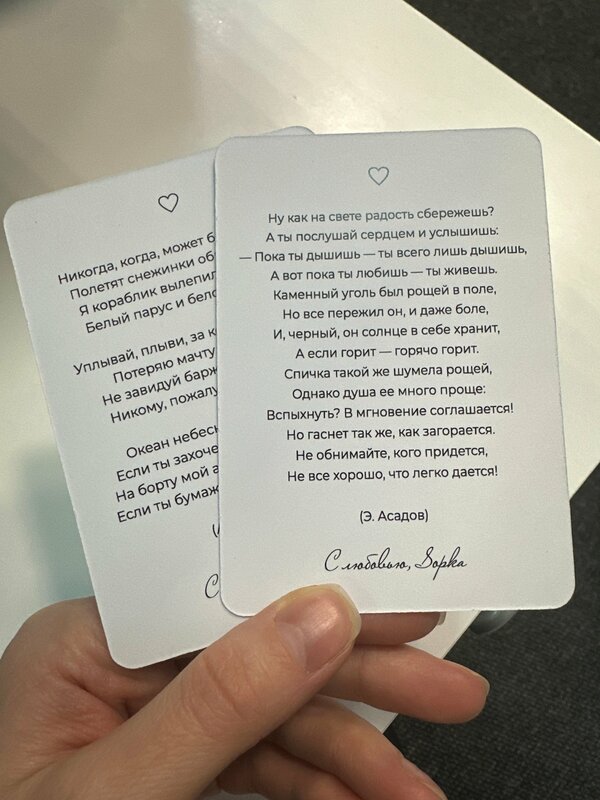 Никогда, когда, может
Полетят снежинки
Я кораблик
Белый парус и
Уплывай, плыви, за
Потеряю мачту
Не завидуй
Никому,
Океан
Если ты
На борту мой
Если ты
Ну как на свете радость сбережешь?
А ты послушай сердцем и услышишь:
— Пока ты дышишь — ты всего лишь дышишь,
А вот пока ты любишь — ты живешь.
Каменный уголь был рощей в поле,
Но все пережил он, и даже боле,
И, черный, он солнце в себе хранит,
А если горит — горячо горит.
Спичка такой же шумела рощей,
Однако душа ее много проще:
Вспыхнуть? В мгновение соглашается!
Но гаснет так же, как загорается.
Не обнимайте, кого придется,
Не все хорошо, что легко дается!
(Э. Асадов)
С любовью, Зорка